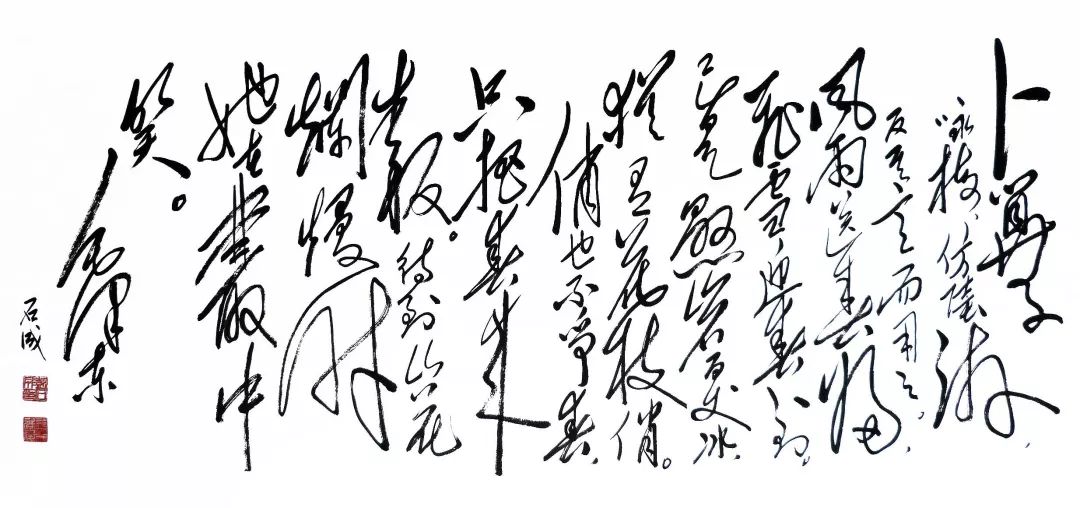 卜算子
“咏梅”、仿陸游
反其意而用之,
风雨送春歸
飛雪迎春到.
已是懸崖百丈冰,
猶有花枝俏。
俏也不争春,
只把春来
報。待到山花
爛漫时
她在叢中
笑。
毛泽东
石成